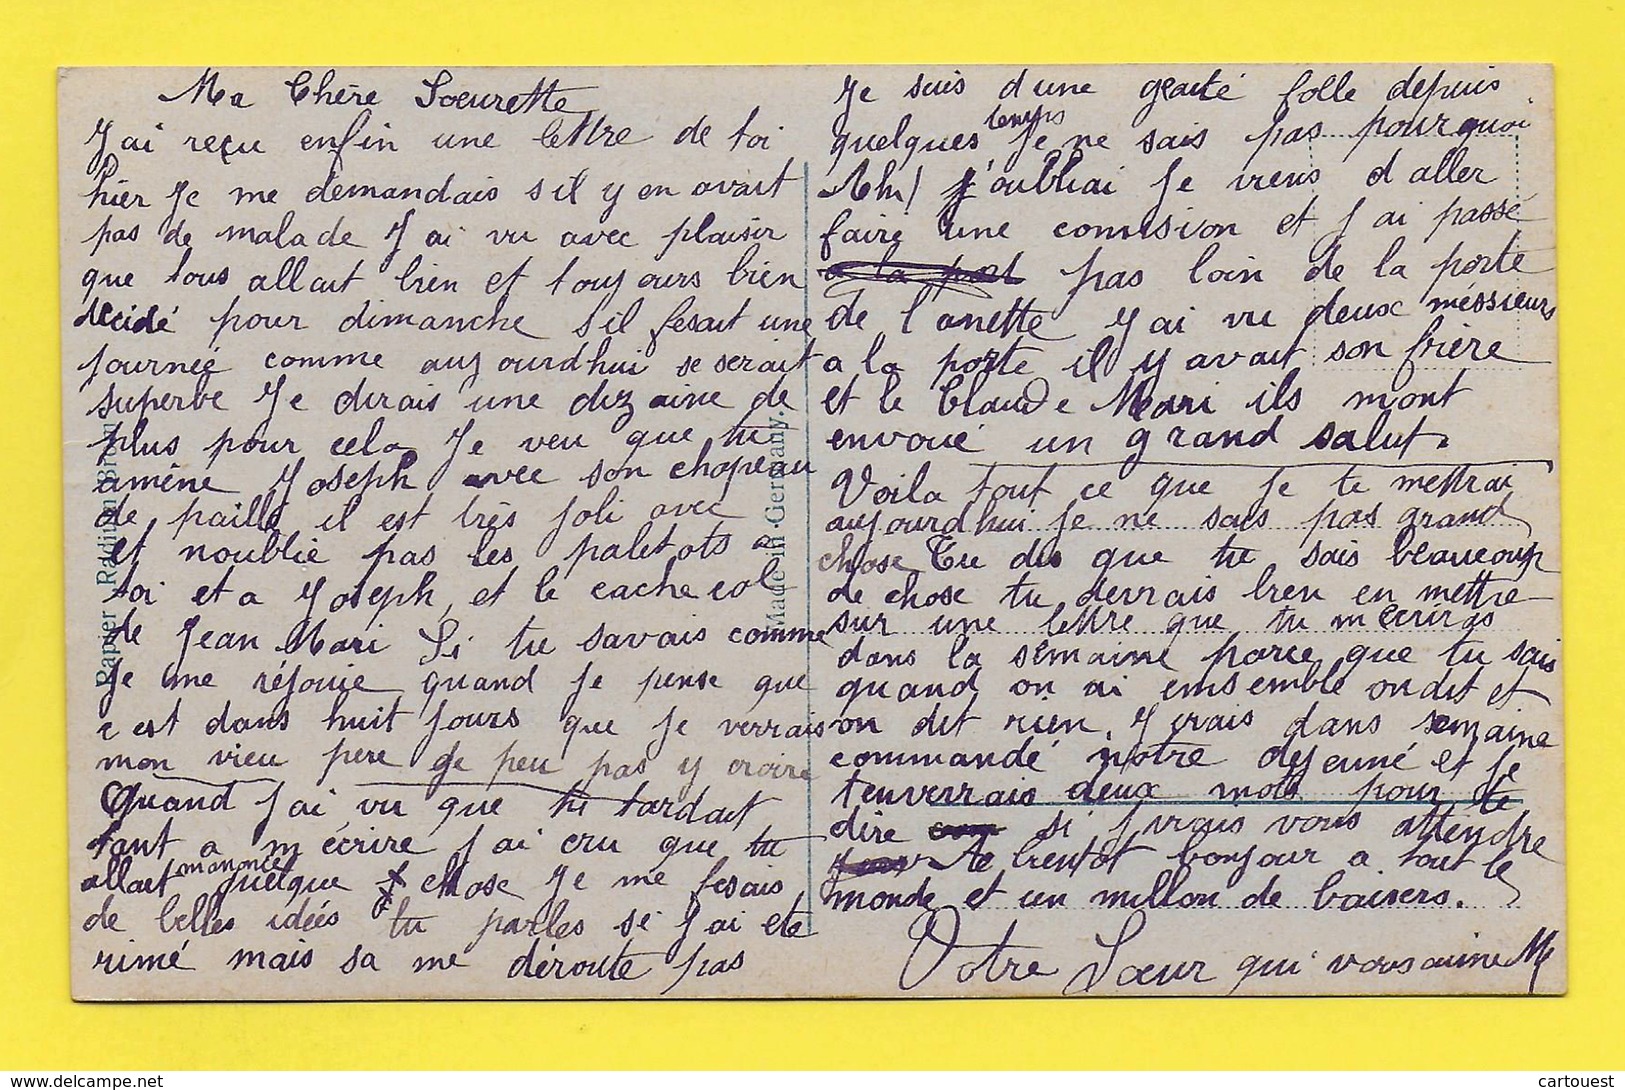 Ma Chère Soeurette
J ai reçu enfin une lettre de toi
hier Je me demandais s il y en avait
pas de malade J ai vu avec plaisir
que tous allait bien et toujours bien
decidé pour dimanche s il fesait une
journée comme aujourdhui se serait
superbe Je dirais une dizaine de
plus pour cela Je veu que tu
amène Joseph avec son chapeau
de paille il est très joli avec
et noublie pas les paletots a
toi et a Joseph et le cache col
de Jean Mari Si tu savais comme
Je me réjouie quand Je pense que
c est dans huit jours que Je verrais
mon vieu pere Je peu pas y croire
Quand J ai vu que tu tardait
tant a m écrire J ai cru que tu
allait manoncer quelque chose Je me fesais
de belles idées tu parles si J ai ete
rimé mais sa me déroute pas
Je suis d une geaité folle depuis
quelques temps Je ne sais pas pourquoi
Ah! j'oubliai Je viens d aller
faire une comision et J ai passé
a la port pas loin de la porte
de l anette J ai vu deux méssieurs
a la porte il y avait son frière
et le Claude Mari ils mont
envoué un grand salut.
Voila tout ce que Je te mettrai
aujourdhui Je ne sais pas grand
chose Tu dis que tu sais beaucoup
de chose tu devrais bien en mettre
sur une lettre que tu m écriras
dans la semaine parce que tu sais
quand on ai emsemble on dit et
on dit rien. J irais dans semaine
commandé notre dejeuné et Je
tenverrais deux mots pour te
dire si J irais vous attendre
A bientot bonjour a tout le
monde et un million de baisers.
Votre Soeur qui vous aime M
Rapier Radium Brom
Made in Germany.
cartouest